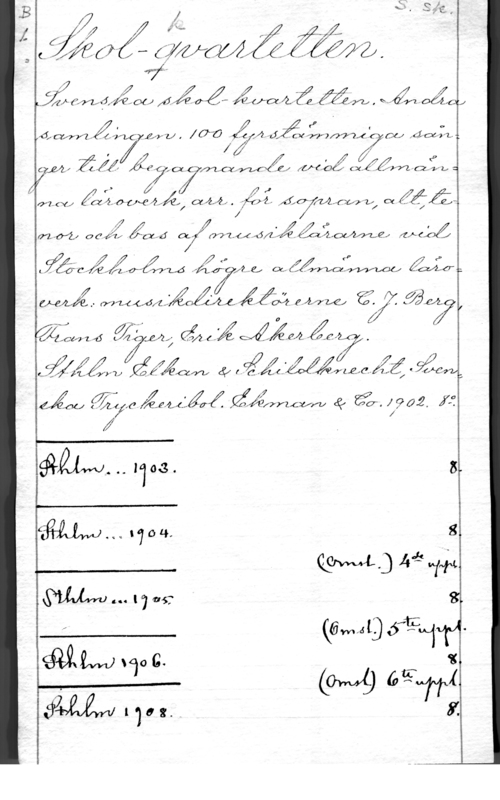 B S. sk.
k
L Skol-qvartetten.
Svenska skol-kvartetten. Andra
samlingen. 100 fyrstämmiga sån=
ger till begagnande vid allmän=
na läroverk, arr. för sopran, alt, te-
nor och bas af musiklärarne vid
Stockholms högre allmänna läro=
verk: musikdirektörerne C. J. Berg,
Frans Tiger, Erik Åkerberg.
Sthlm Elkan & Schildknecht, Sven=
ska Tryckeribol. Ekman & Co. 1902. 8º.
Sthlm... 1903. 8.
Sthlm... 1904. 8.
(Omst.) 4de uppl.
Sthlm... 1905 8.
(Omst.) 5te uppl.
Sthlm 1906. 8.
(Omst) 6te uppl.
Sthlm 1908. 8.